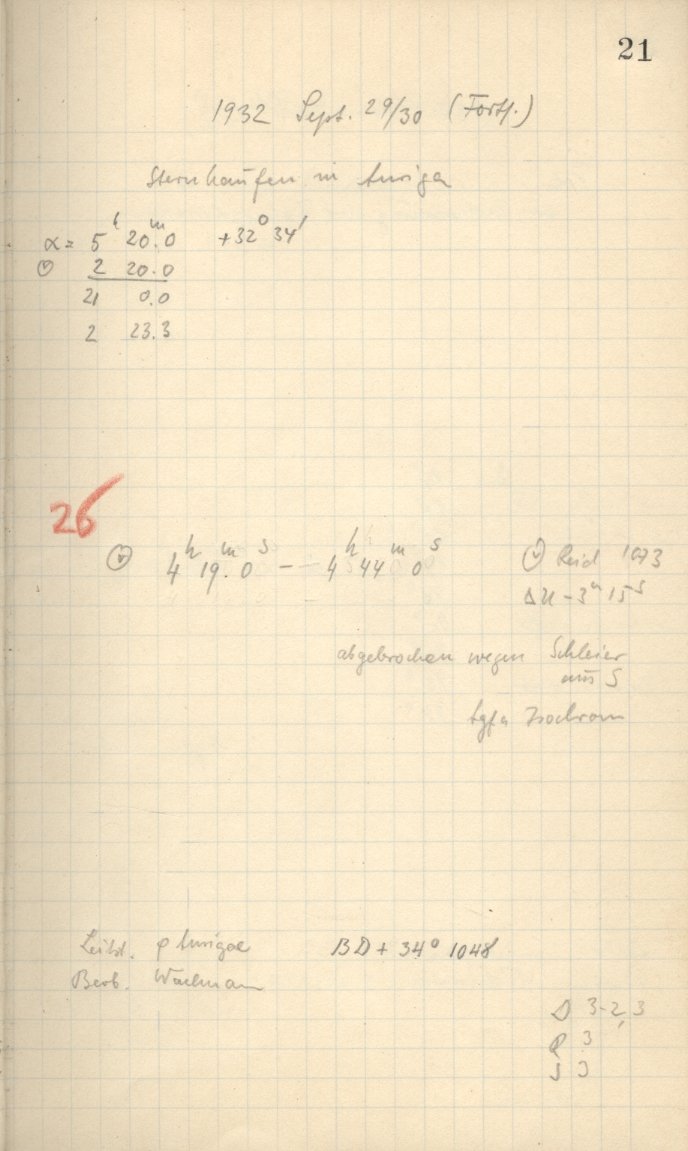 21
1932 Sept. 29/30 (Forts.)
Sternhaufen in Auriga
α = 5ʰ 20ᵐ.0 +32° 34'
2 20.0
21 0.0
2 23.3
26
4ʰ 19ᵐ. 0ˢ – 4ʰ 44ᵐ 0ˢ
Reid 1073
ΔU – 3ᵐ 15ˢ
abgebrochen wegen Schleier
aus S
Agfa Isochrom
Leitst. φ Aurigae BD + 34° 1048
Beob. Wachmann
3-2,3
3
3